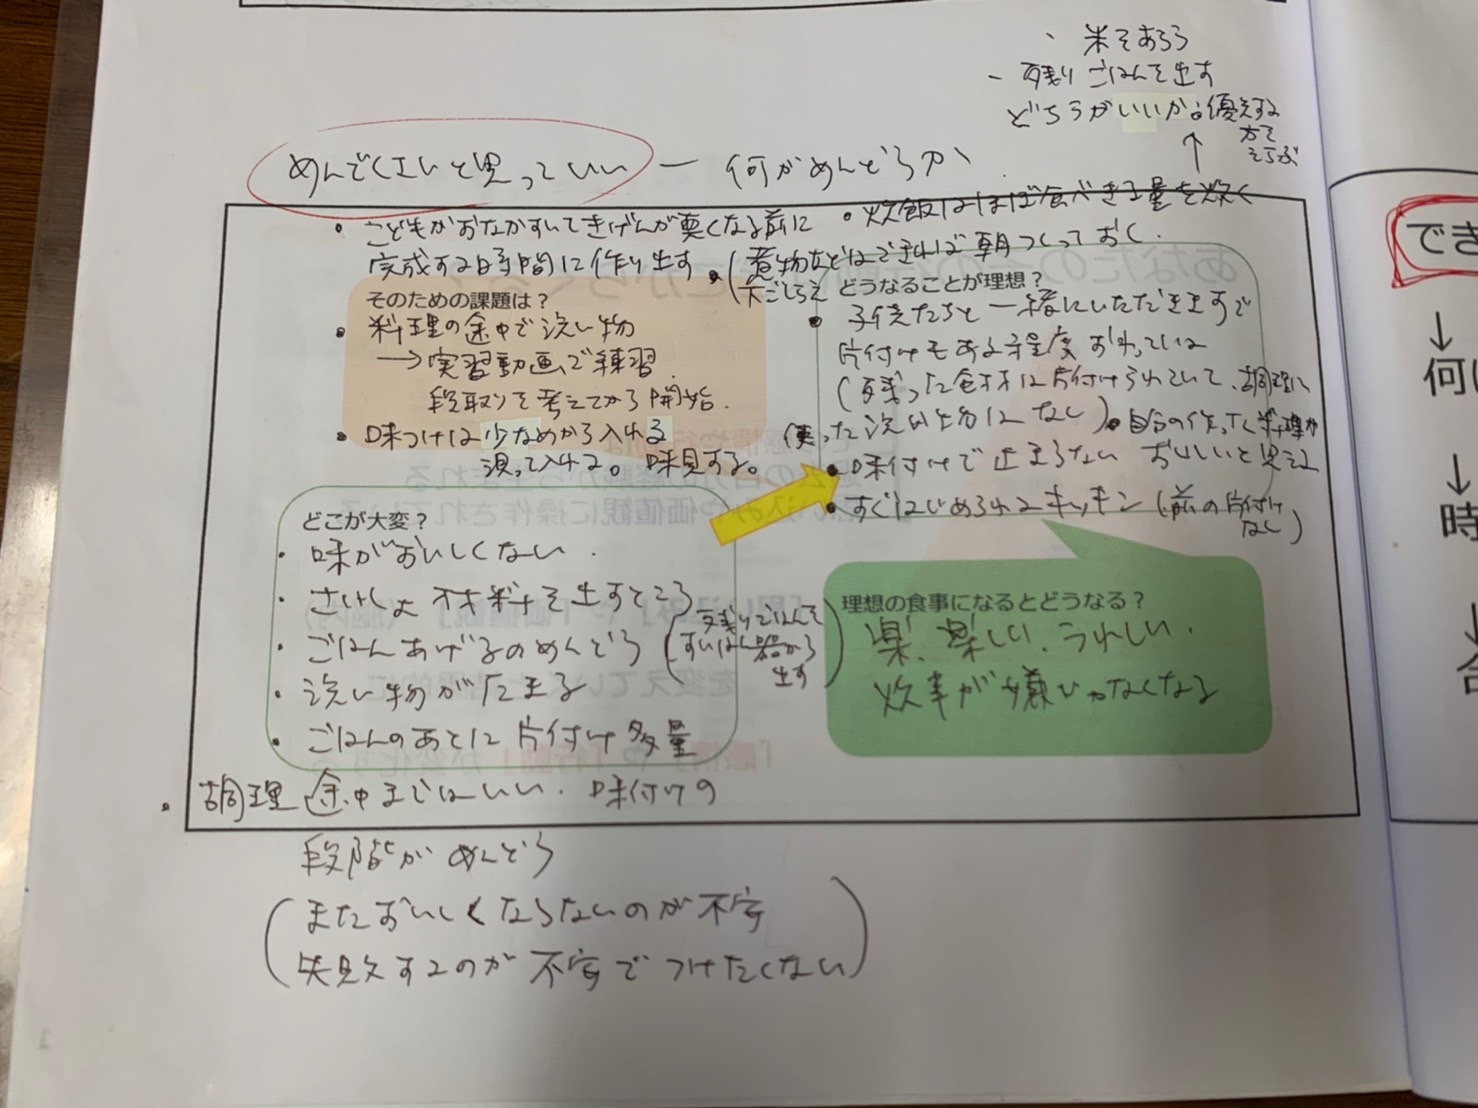 ・米をあらう
- 残りごはんを出す
どちらがいいか。優先する
方を
えらぶ
↑
めんどくさいと思っていい — 何がめんどうか
・こどもがおなかすいてきげんが悪くなる前に
完成する時間に作り出す
・炊飯はほぼ食べきる量を炊く
・(煮物などはできれば朝つくっておく
下ごしらえ
そのための課題は？
・料理の途中で洗い物
→実習動画で練習
段取りを考えてから開始.
・味つけは少なめから入れる
測って入れる。味見する。
どうなることが理想？
・子供たちと一緒にいただきますで
片付けもある程度おわっている
(残った食材は片付けられていて、調理に
使った洗い物はなし)
・自分の作った料理が
おいしいと思える
・味付けで止まらない
・すぐはじめられるキッチン(前の片付け
なし)
どこが大変？
・味がおいしくない.
・さいしょ 材料を出すところ
・ごはんあげるのめんどう(残りごはんを
すいはん器から
出す)
・洗い物がたまる
・ごはんのあとに片付け多量
・調理途中まではいい. 味付けの
段階がめんどう
(またおいしくならないのが不安
失敗するのが不安でつけたくない)
理想の食事になるとどうなる？
楽、楽しい、うれしい.
炊事が嫌いでなくなる
でき
↓
何
↓
時
↓
1